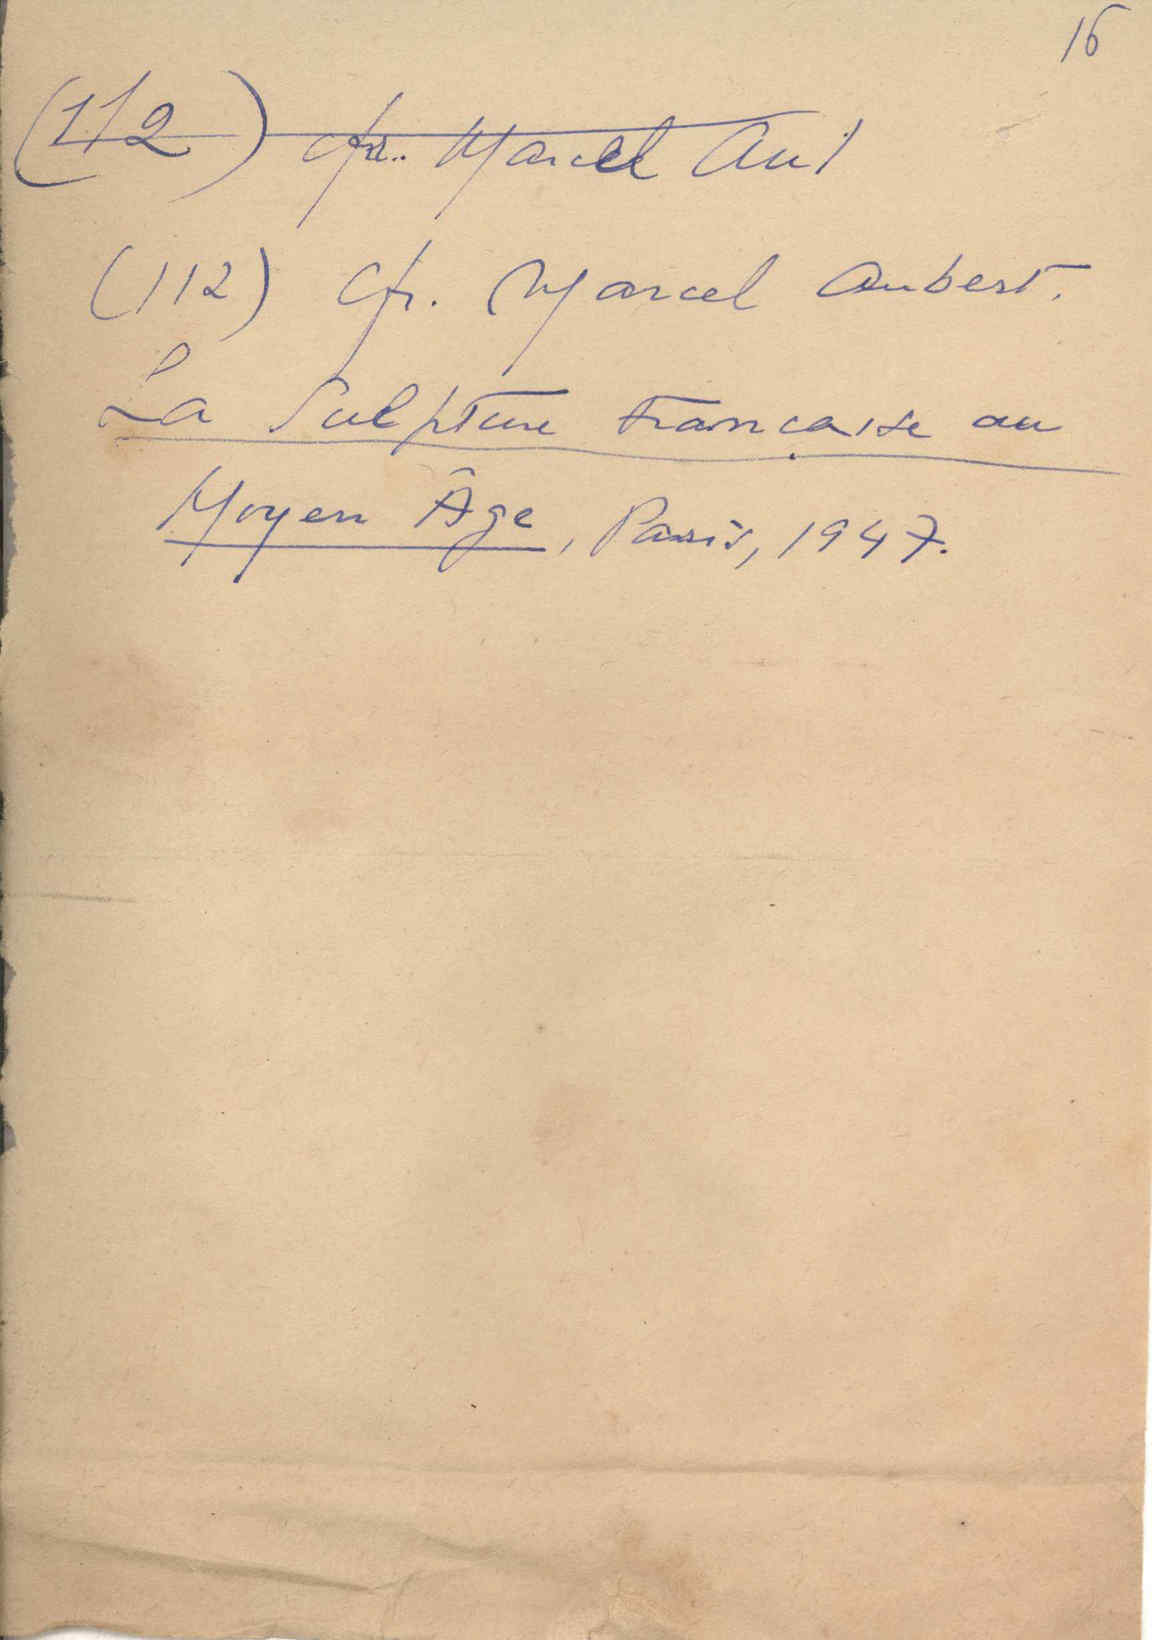 16
(112) Cfr. Marcel Au
(112) Cfr. Marcel Aubert.
La Sculpture française au
Moyen Âge, Paris, 1947.